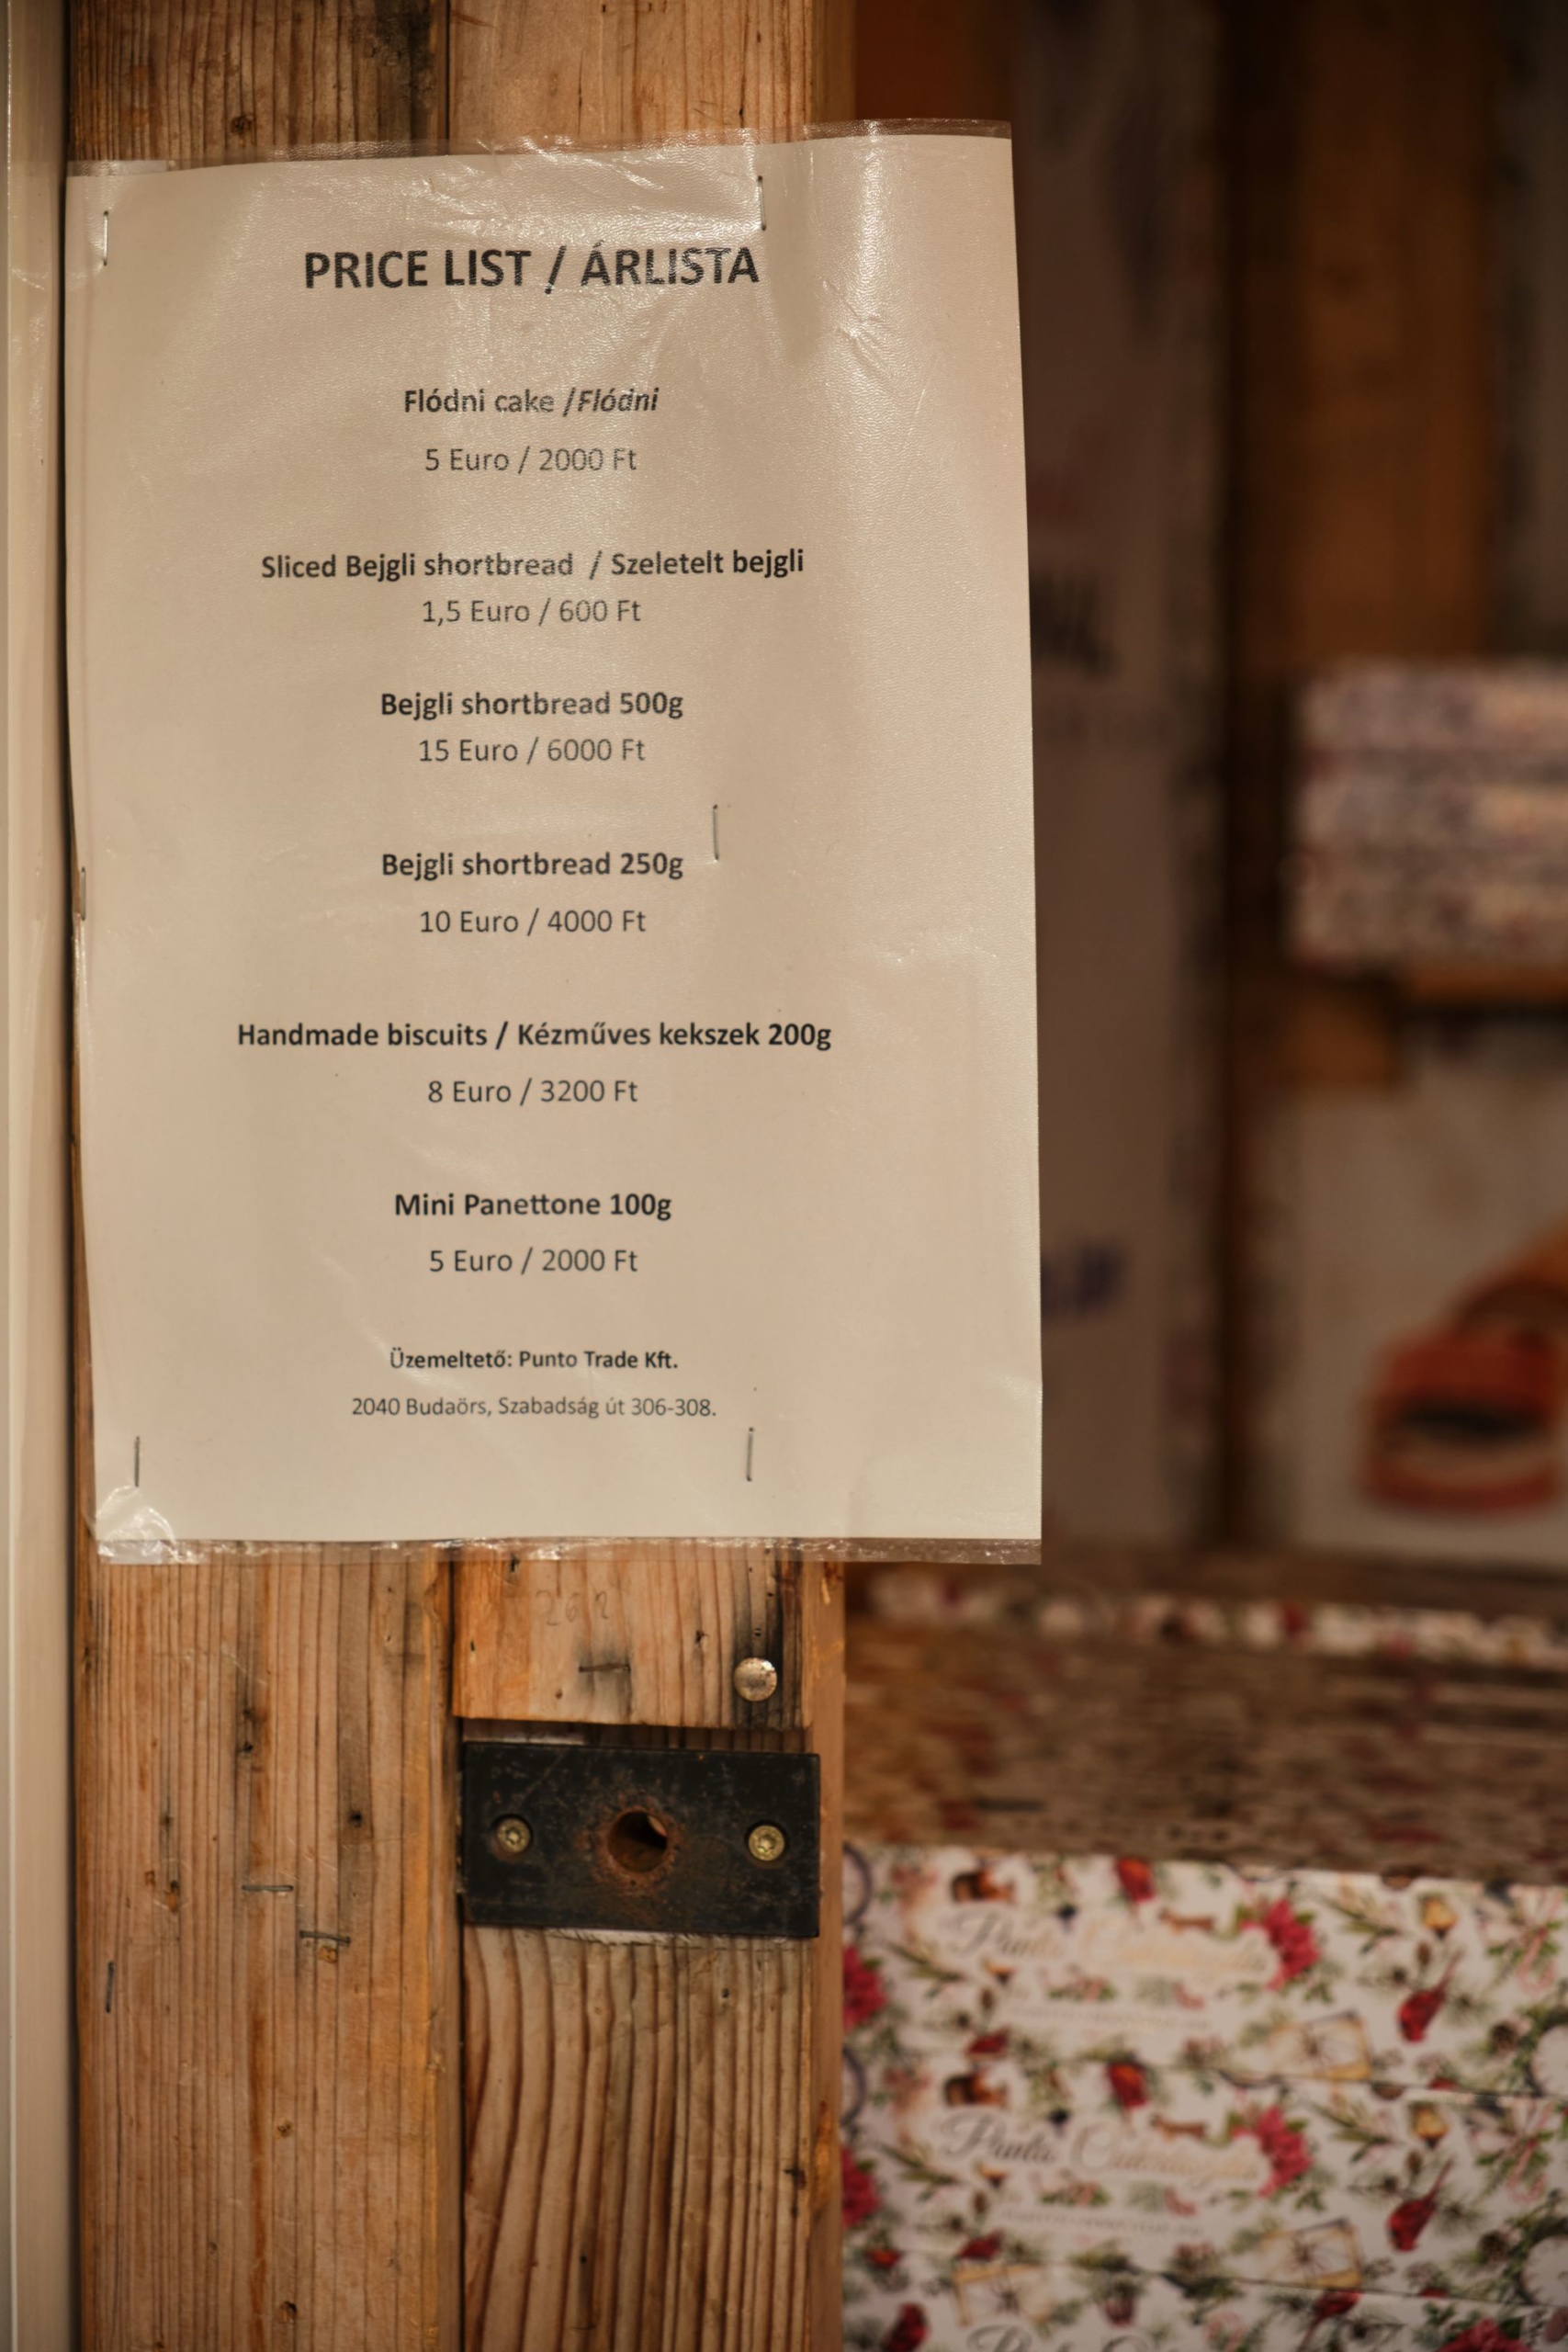 PRICE LIST / ÁRLISTA
Flódni cake /Flódni
5 Euro / 2000 Ft
Sliced Bejgli shortbread / Szeletelt bejgli
1,5 Euro / 600 Ft
Bejgli shortbread 500g
15 Euro / 6000 Ft
Bejgli shortbread 250g
10 Euro / 4000 Ft
Handmade biscuits / Kézműves kekszek 200g
8 Euro / 3200 Ft
Mini Panettone 100g
5 Euro / 2000 Ft
Üzemeltető: Punto Trade Kft.
2040 Budaörs, Szabadság út 306-308.